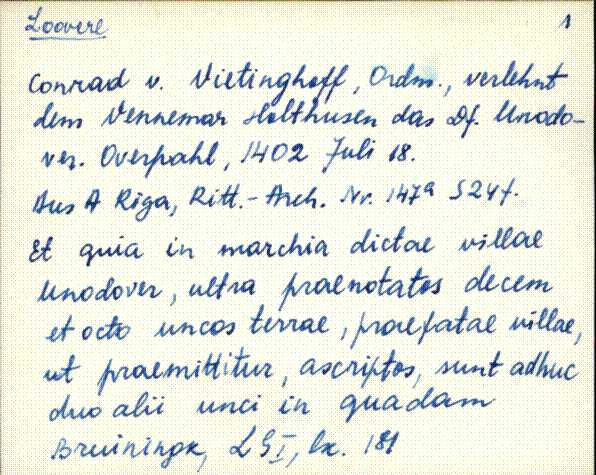 Loovere 1
Conrad v. Vietinghoff, Ordm., verlehnt
dem Vennemar Holthusen das Df. Unodo-
ver. Overpahl, 1402 Juli 18.
Aus A Riga, Ritt.-Arch. Nr. 147a S 247.
Et quia in marchia dictae villae
Unodover, ultra praenotatos decem
et octo uncos terrae, praefatae villae,
ut praemittitur, ascriptos, sunt adhuc
duo alii unci in quadam
Bruiningk, LGI, lk. 181